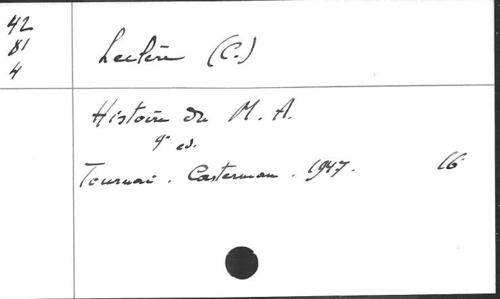 42
81
4
Leclère (C.)
Histoire du M. A.
4e ed.
Tournai. Casterman. 1947. 16